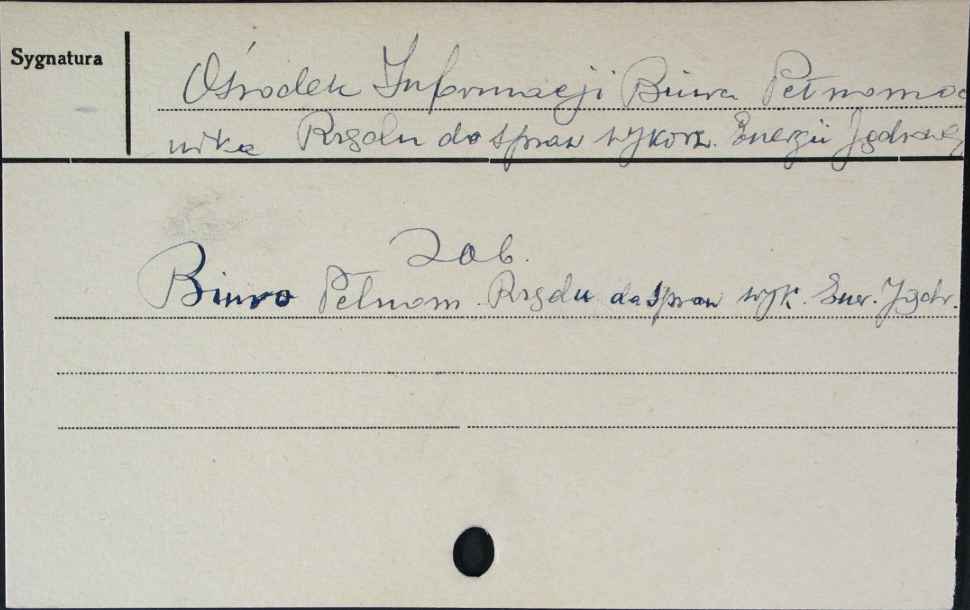 Sygnatura
Ośrodek Informacji Biura Pełnomoc
nika Rządu do spraw wykorz. Energii Jądrowej
Zob.
Biuro Pełnom. Rządu do spraw wyk. Ener. Jądr.